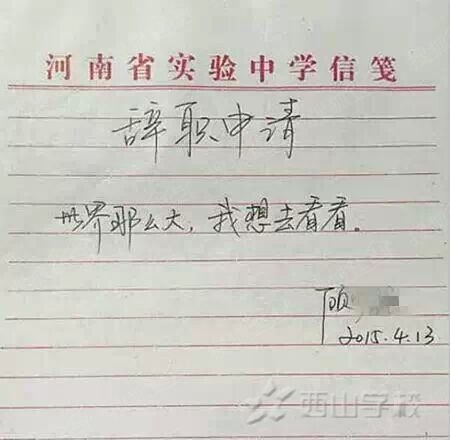 河南省实验中学信笺
辞职申请
世界那么大，我想去看看。
顾
2015.4.13
西山学校